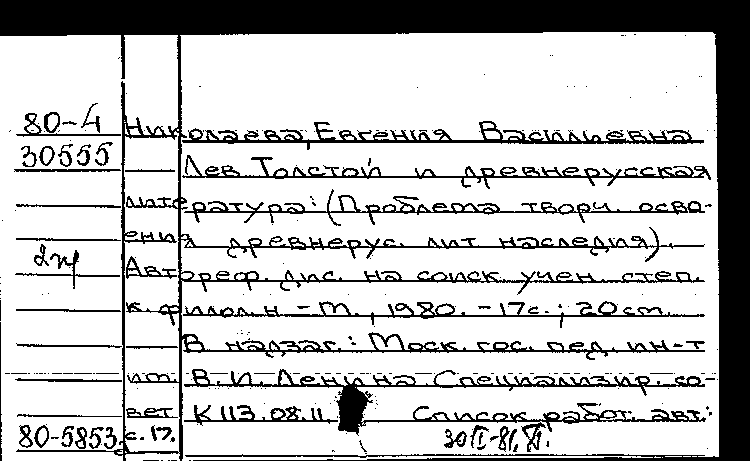 80-4 Николаева, Евгения Васильевна
30555 Лев Толстой и древнерусская
литература: (Проблема творч. осво-
ения древнерус. лит наследия).
2 Автореф. дис. на соиск учен. степ.
к. филол. н - М., 1980. - 17с.; 20 см.
В надзаг.: Моск. гос. пед. ин-т
им. В. И. Ленина Специализир. со-
вет К 113.08.11. Список работ. авт.:
80-5853 с. 17.